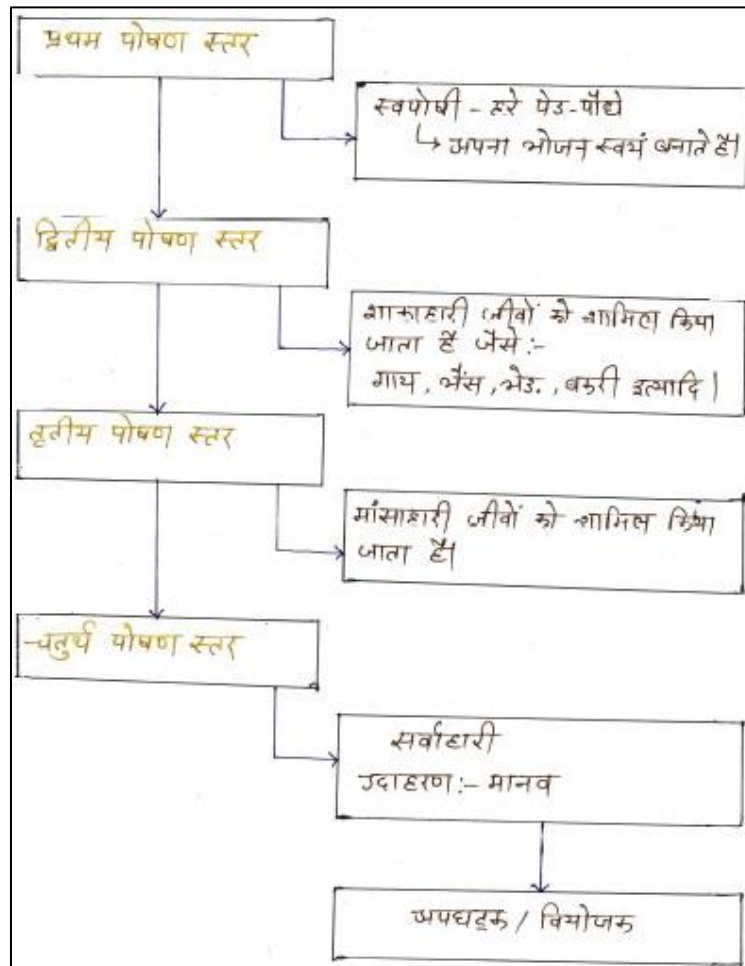 प्रथम पोषण स्तर
स्वपोषी - हरे पेड-पौधे
अपना भोजन स्वयं बनाते है।
द्वितीय पोषण स्तर
शाकाहारी जीवों को शामिल किया
जाता है जैसे:-
गाय, भैंस, भेड, बकरी इत्यादि।
तृतीय पोषण स्तर
मांसाहारी जीवों को शामिल किया
जाता है।
चतुर्थ पोषण स्तर
सर्वाहारी
उदाहरण:- मानव
अपघटक / वियोजक